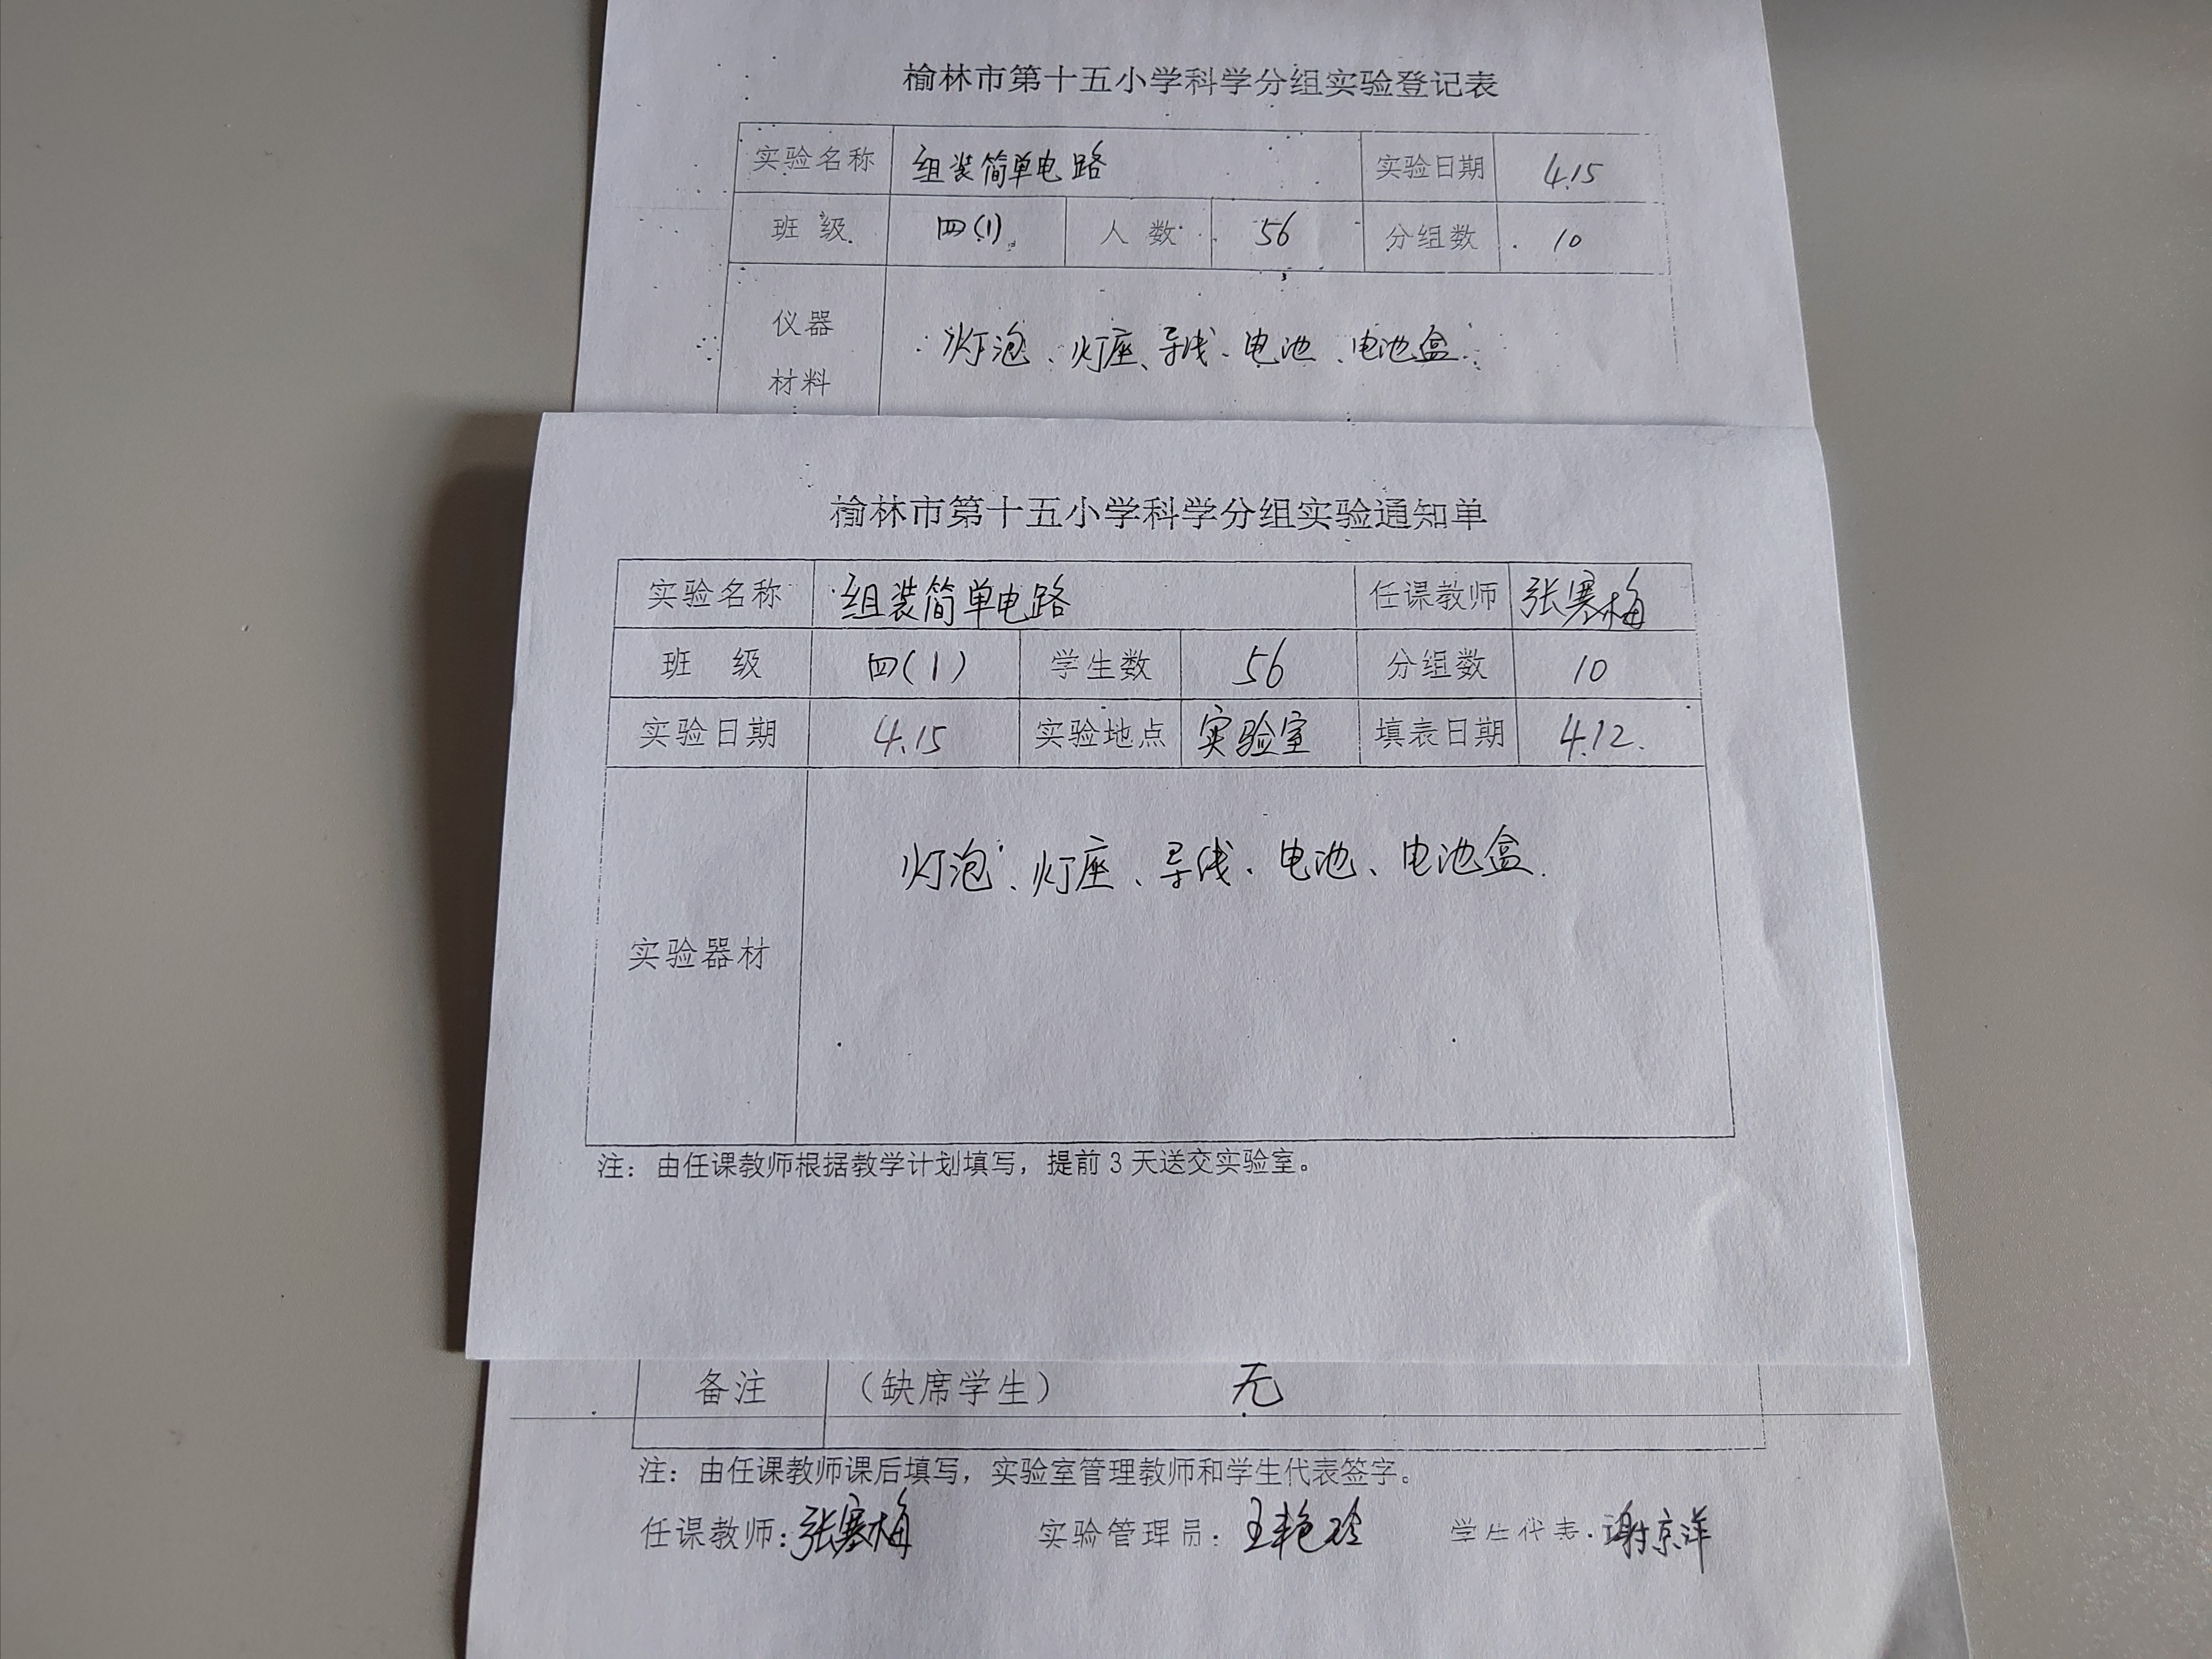 榆林市第十五小学科学分组实验登记表
实验名称 组装简单电路 实验日期 4.15
班 级 四(1) 人 数 56 分组数 10
仪器
材料 灯泡、灯座、导线、电池、电池盒.
榆林市第十五小学科学分组实验通知单
实验名称 组装简单电路 任课教师 张寒梅
班 级 四(1) 学生数 56 分组数 10
实验日期 4.15 实验地点 实验室 填表日期 4.12.
灯泡、灯座、导线、电池、电池盒.
实验器材
注：由任课教师根据教学计划填写，提前3天送交实验室。
备注 （缺席学生） 无
注：由任课教师课后填写，实验室管理教师和学生代表签字。
任课教师：张寒梅 实验管理员：王艳玲 学生代表：谢京洋